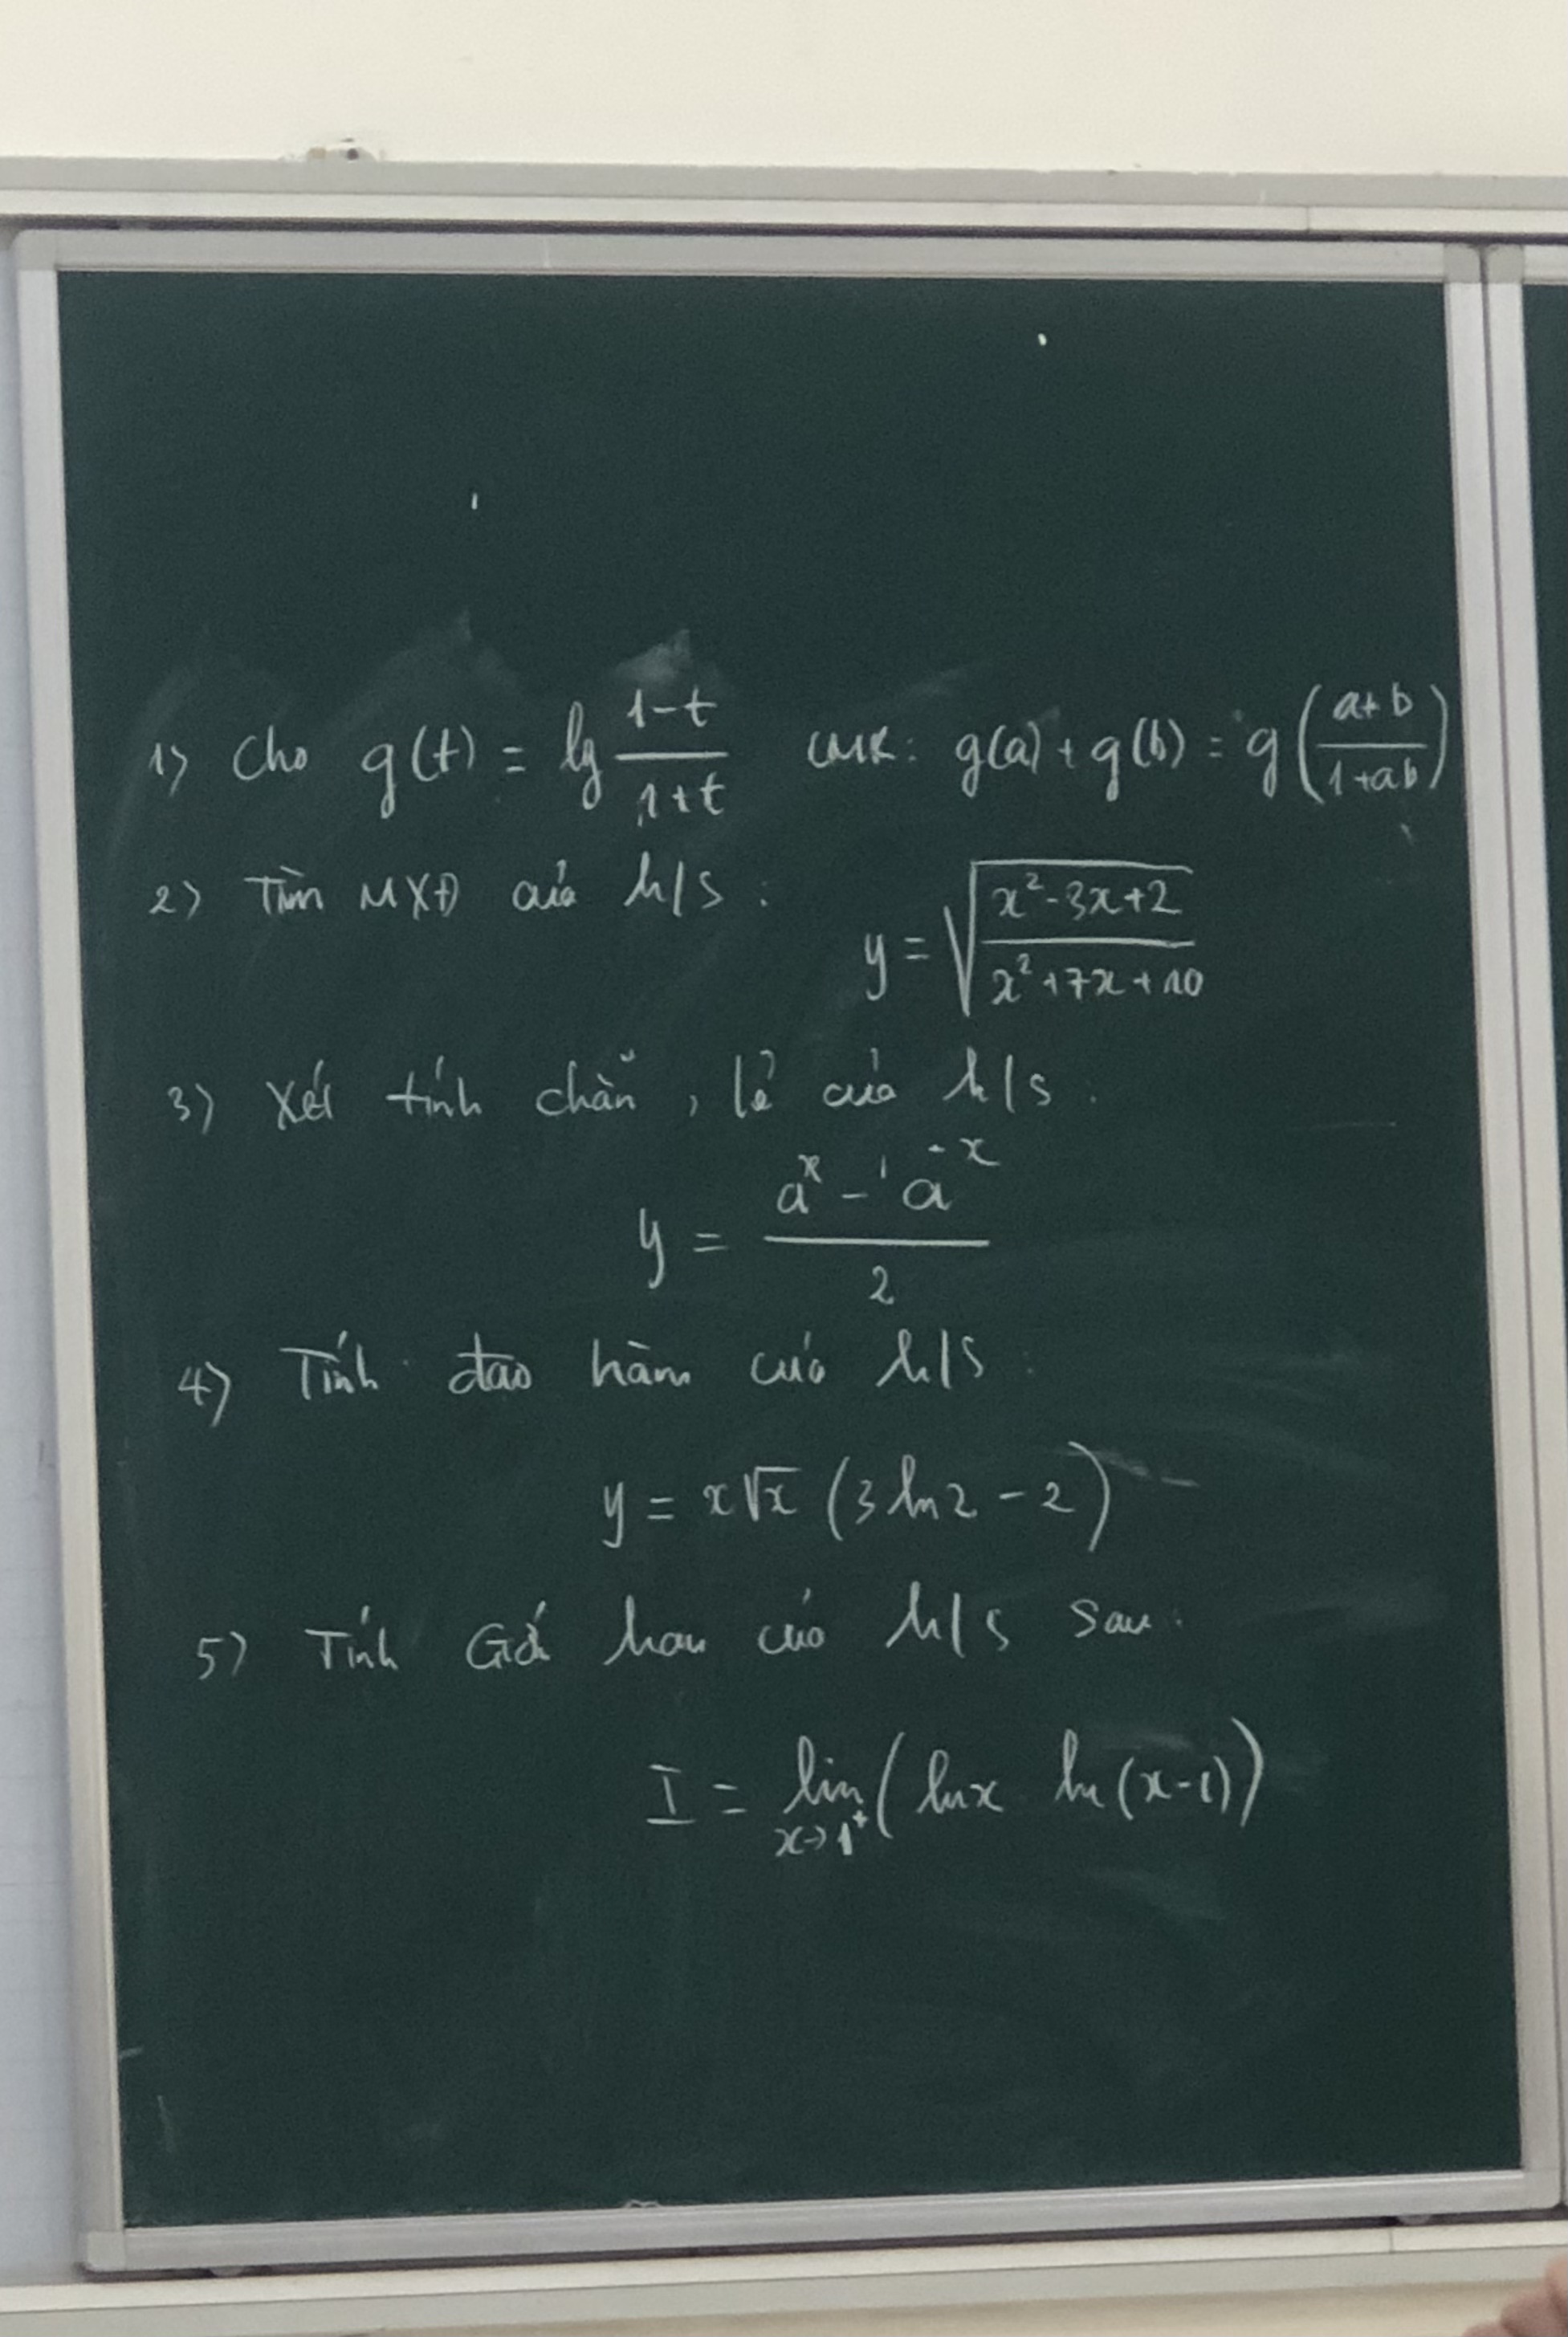 1) Cho g(t) = lg \frac{1-t}{1+t} CMR: g(a) + g(b) = g(\frac{a+b}{1+ab})
2) Tìm MXĐ của h/s : y = \sqrt{\frac{x^2-3x+2}{x^2+7x+10}}
3) Xét tính chẵn, lẻ của h/s :
y = \frac{a^x - a^{-x}}{2}
4) Tính đạo hàm của h/s :
y = x\sqrt{x} (3 ln2 - 2)
5) Tính Giới hạn của h/s sau :
I = \lim_{x \to 1^+} (lnx ln(x-1))